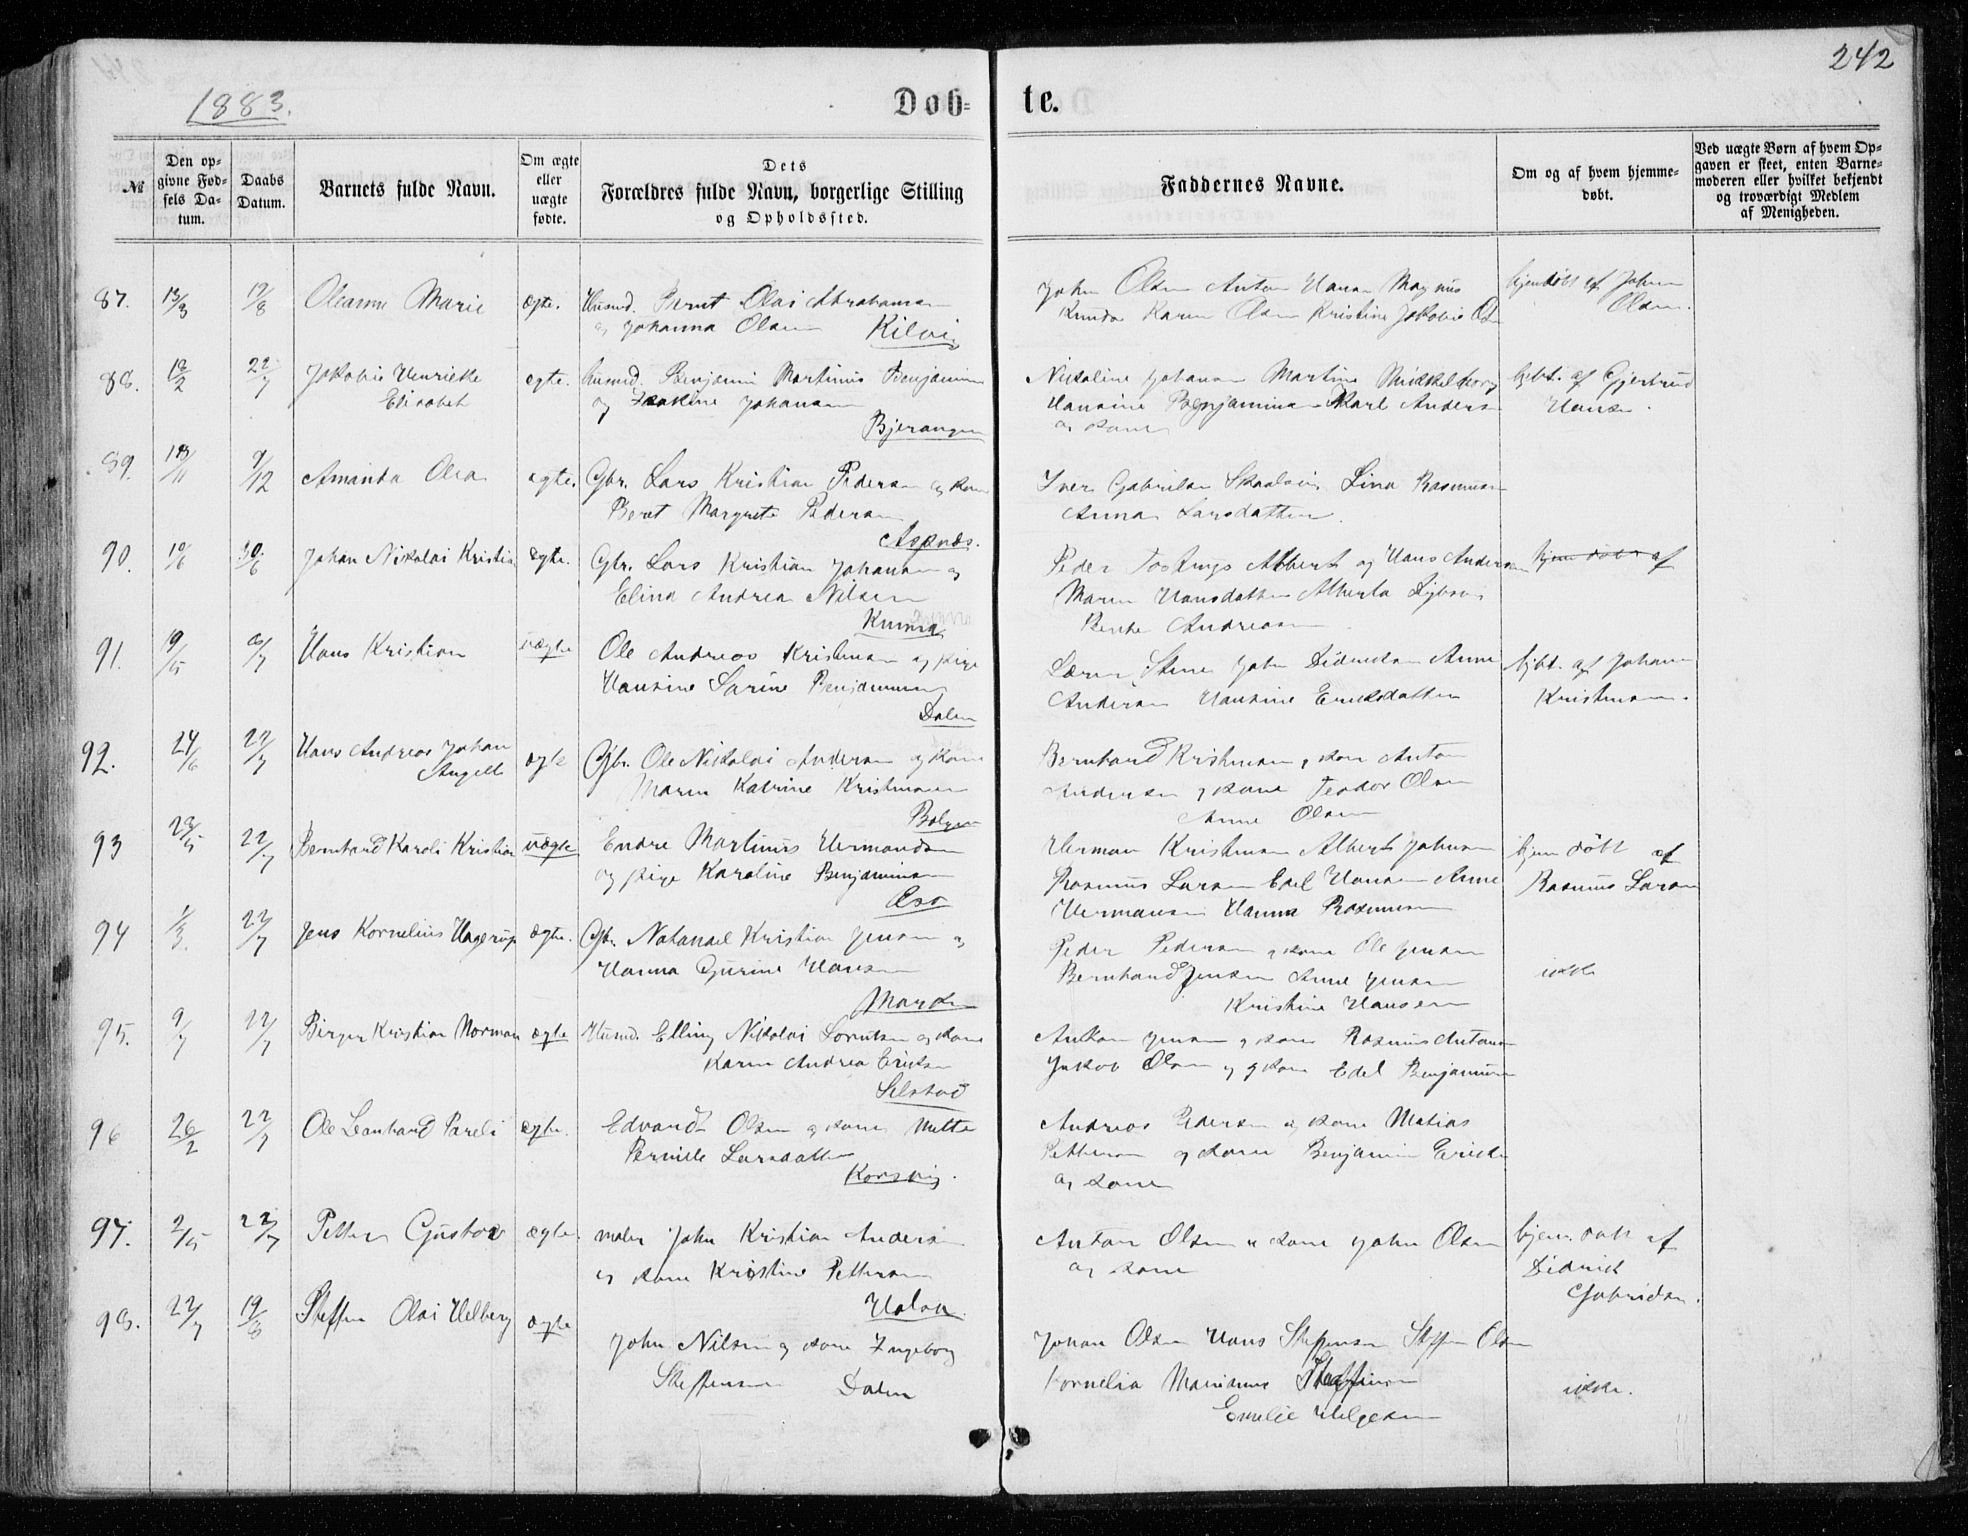 242
1883.
Døb-
te.
№
Den opgivne Fødsels Datum.
Daabs Datum.
Barnets fulde Navn.
Om ægte eller uægte fødte.
Dets Forældres fulde Navn, borgerlige Stilling og Opholdssted.
Faddernes Navne.
Om og af hvem hjemmedøbt.
Ved uægte Børn af hvem Opgaven er skeet, enten Barnemoderen eller hvilket bekjendt og troværdigt Medlem af Menigheden.
87. 13/3 19/8 Oleanna Marie ægte. Husmd. Bernt Olai Abrahamsen
og Johanna Olsen Kilvig
John Olsen Anton Hansen Magnus
Karen Olsen Kristine Jakobie Ols
hjemdöbt af Johan
Olsen.
88. 18/2 22/7 Jakobie Henrikke
Elisabet
ægte. Husmd. Benjamin Martinus Benjamin
og Johansen
Bjerangen
Nikoline Johansen Martine Mikkelborg
Hansine Benjaminsen Karl Anders
og kone
hjbt. af Gjertrud
Hansen.
89. 9/12 Amanda Olea ægte. Gbr. Lars Kristian Pedersen og kone
Berit Margrete Pedersen
Aspnæs.
Iver Gabrielsen Skaalsvig Lina Rasmussen
Anna Larsdatter.
90. 10/6 30/6 Johan Nikolai Kristia ægte. Gbr. Lars Kristian Johansen og
Elina Andrea Nilsen
Kunna
Peder Albert og Hans Andersen
Maren Hansdatter Alberta
Andreasen
hjemdöbt af
91. 19/5 8/7 Hans Kristian uægte Ole Andreas Kristensen og pige
Hansine Sarine Benjaminsen
Dalen
Stine John Didriksen Anne
Andersen Hansine Eriksdatter
hjbt. af Johan
Kristensen.
92. 24/6 22/7 Hans Andreas Johan
Angell
ægte Gbr. Ole Nikolai Andersen og kone
Maren Katrine Kristensen
Bolgen
Bernhard Kristensen og kone Anton
Andersen og kone Teodor Olsen
Anne Olsen
93 28/5 22/7 Bernhard Karoli Kristian uægte Endre Martinus Hermandsen
og pige Karoline Benjaminsen
Æsø
Herman Kristensen Albert Johnsen
Rasmus Larsen Edel Hansen Anne
Hermansen Hanna Rasmussen
hjem döbt af
Rasmus Larsen
94 1/3. 22/7 Jens Kornelius Hagerup ægte. Gbr. Natanael Kristian Jensen og
Hanna Gurine Hansen
Marken
Peder Pedersen og kone Ole Jensen
Bernhard Jensen Anne Jensen
Kristine Hansen
ikke
95. 9/7 22/7 Birger Kristian Norman ægte Husmd. Elling Nikolai Lorntsen og kone
Karen Andrea Eriksen
Selstad
Anton Jensen og kone Rasmus Antons
Jakob Olsen og kone Edel Benjaminsen
96 26/2 22/7 Ole Leonhard Pareli ægte. Edvard Olsen og kone Mette
Pernille Larsdatter
Korsvig.
Andreas Pedersen og kone Matias
Pettersen og kone Benjamin Eriks
og kone
97. 2/5 22/7 Petter Gustav ægte. maler John Kristian Andersen
og kone Kristine Pettersen
Halsa.
Anton Olsen og kone John Olsen
og kone
hjem. döbt af
Didrich
Gabrielsen.
98. 22/7 19/8 Steffen Olai Helberg ægte
John Nilsen og kone Ingeborg
Steffensen Dalen
Johan Olsen Hans Steffensen Steffen Olsen
Kornelia Marianus Steffensen
Emilie Helgesen
ikke.